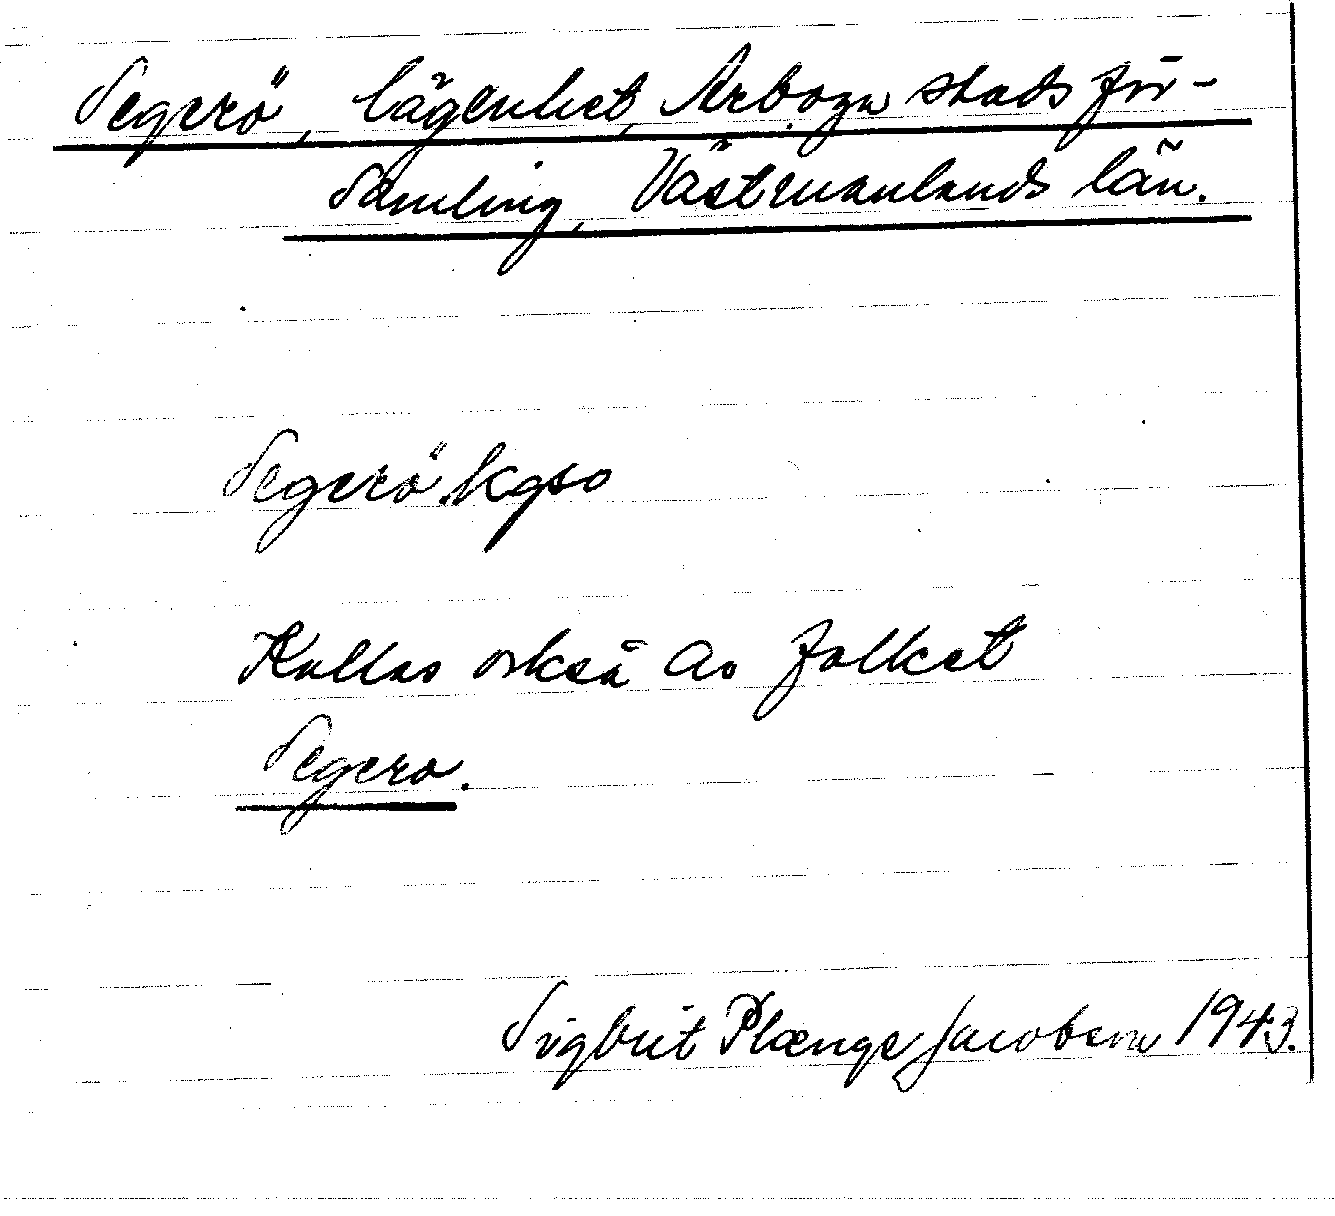 Segerö, lägenhet, Arboga stads för-
samling, Västmanlands län.
Segerö Kgso
Kallas också av folket
Segero.
Sigbrit Plænge Jacobson 1943.